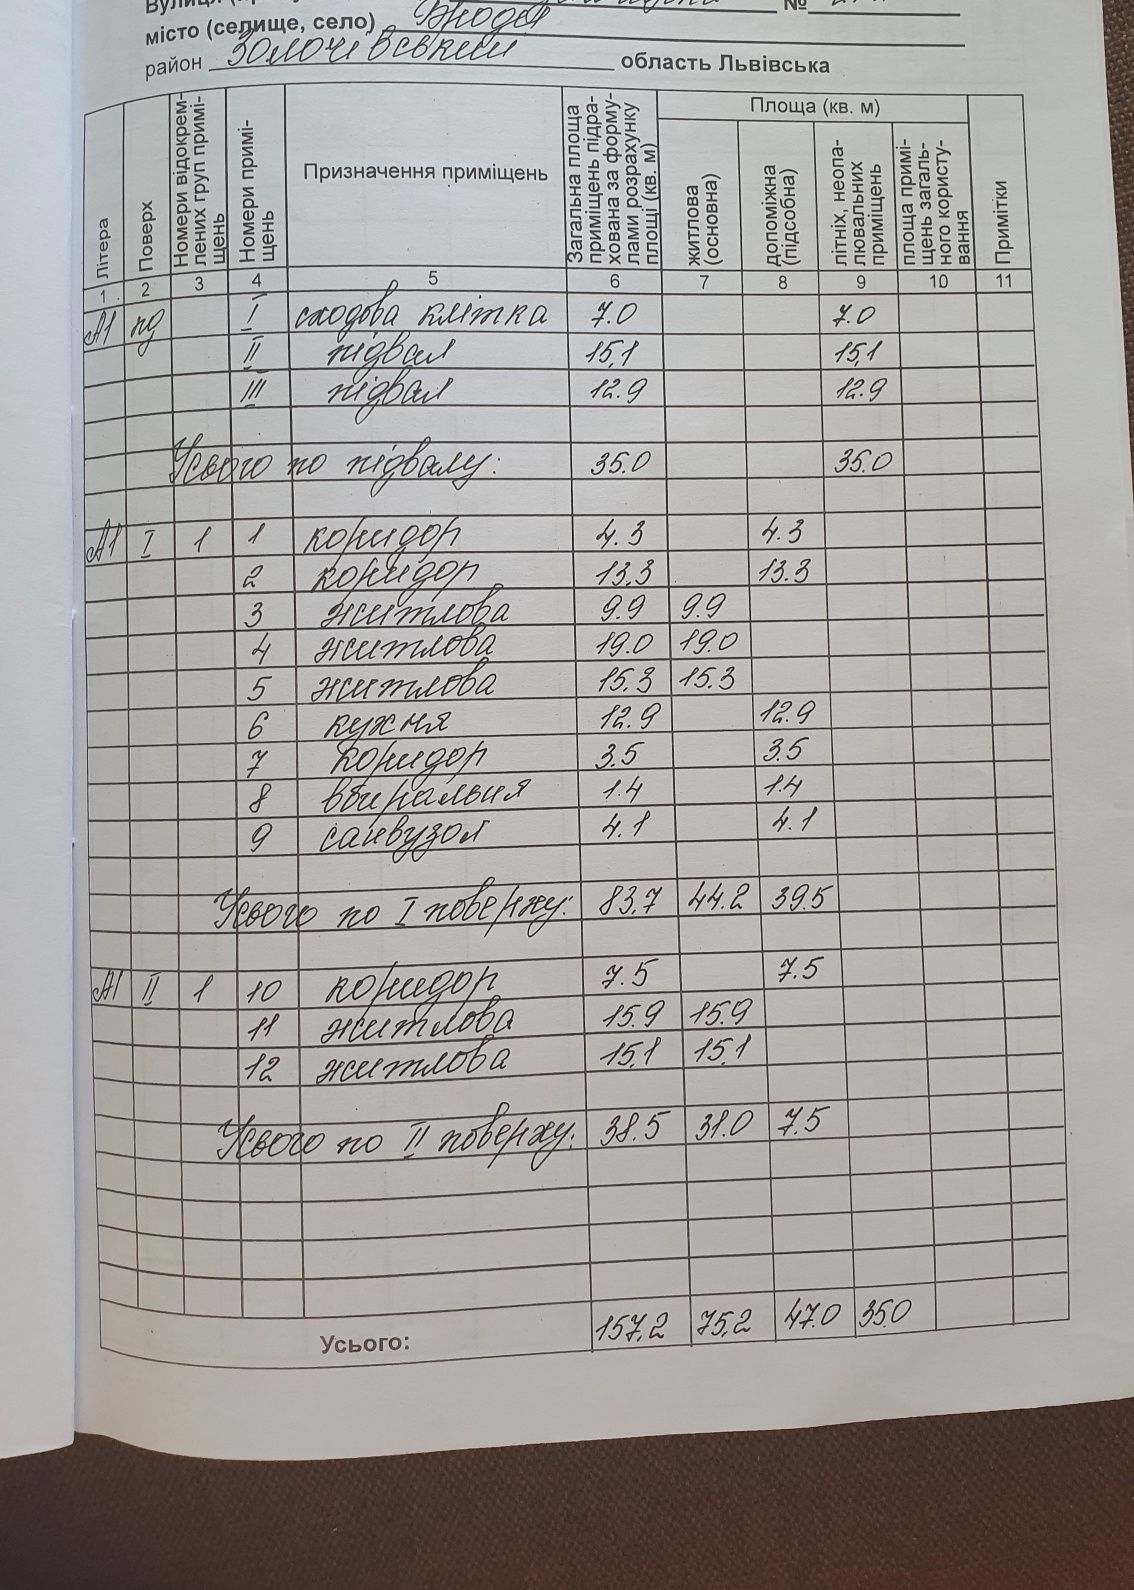 Вулиця
№
місто (селище, село)
район Золочівський область Львівська
Літера
Поверх
Номери відокрем-
лених груп примі-
щень
Номери примі-
щень
Призначення приміщень
Загальна площа
приміщень підра-
хована за форму-
лами розрахунку
площі (кв. м)
Площа (кв. м)
житлова
(основна)
допоміжна
(підсобна)
літніх, неопа-
лювальних
приміщень
площа примі-
щень загаль-
ного користу-
вання
Примітки
1 2 3 4 5 6 7 8 9 10 11
А1 пд I сходова клітка 7.0 7.0
II підвал 15,1 15,1
III підвал 12.9 12.9
Усього по підвалу: 35.0 35.0
А1 I 1 1 коридор 4.3 4.3
2 коридор 13,3 13.3
3 житлова 9.9 9.9
4 житлова 19.0 19.0
5 житлова 15.3 15.3
6 кухня 12.9 12.9
7 коридор 3.5 3.5
8 вбиральня 1.4 1.4
9 санвузол 4.1 4.1
Усього по I поверху: 83,7 44.2 39.5
А1 II 1 10 коридор 7.5 7.5
11 житлова 15.9 15.9
12 житлова 15,1 15,1
Усього по II поверху: 38.5 31.0 7.5
Усього: 157,2 75,2 47.0 35.0